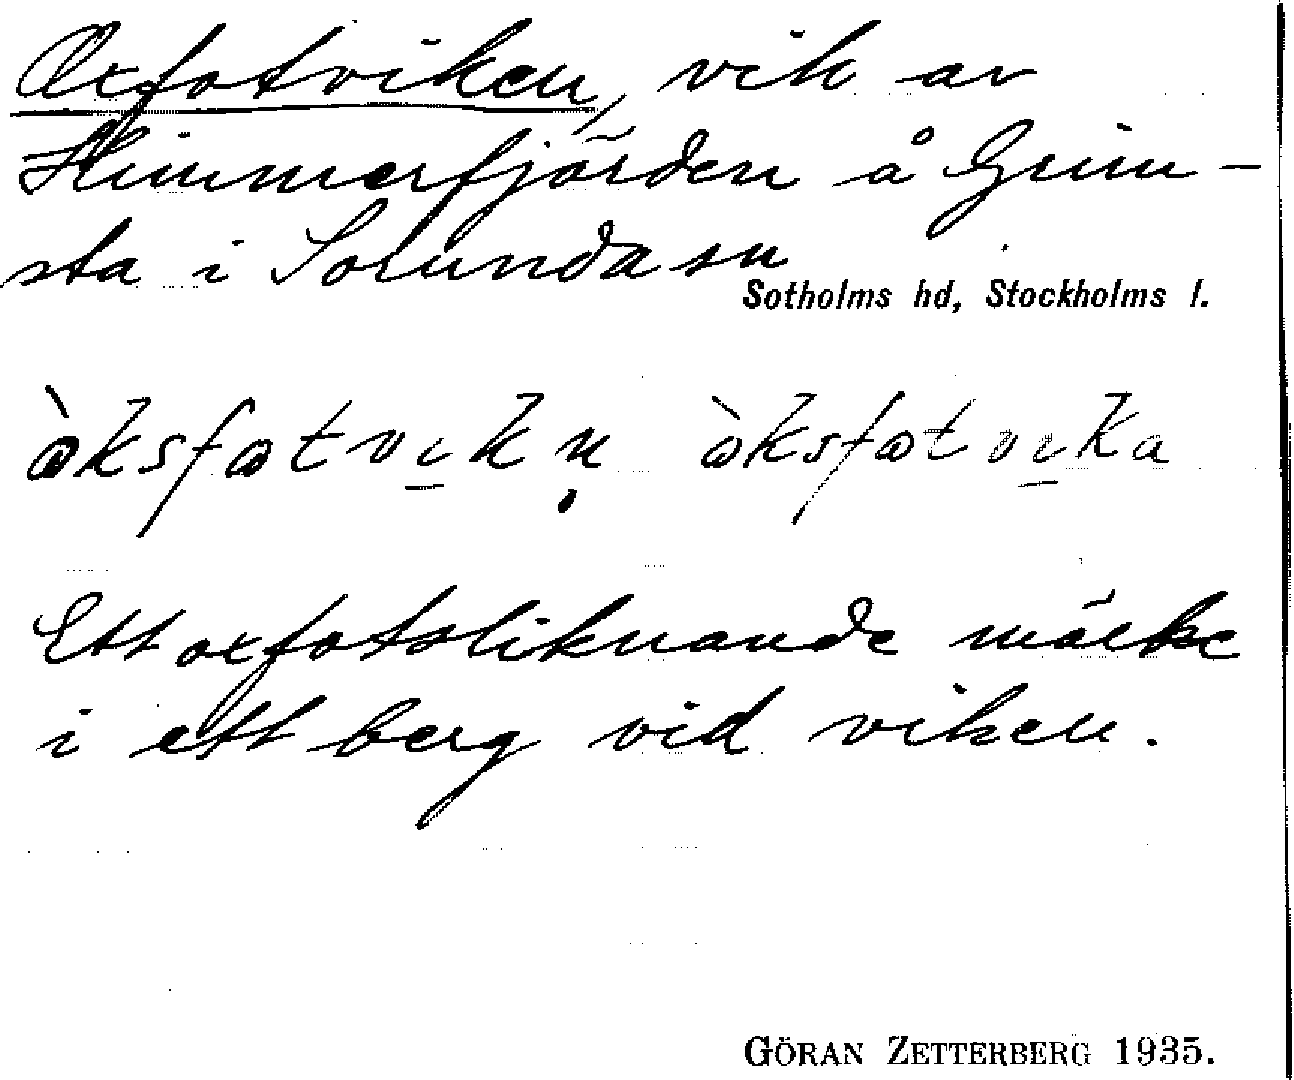 Oxfotviken, vik av
Himmerfjärden å Grim-
sta i Sorunda sn
Sotholms hd, Stockholms l.
ò̀ksfωtvı̲kn̥ ò̀ksfωtvı̲ka
Ett oxfotsliknande märke
i ett berg vid viken.
GÖRAN ZETTERBERG 1935.